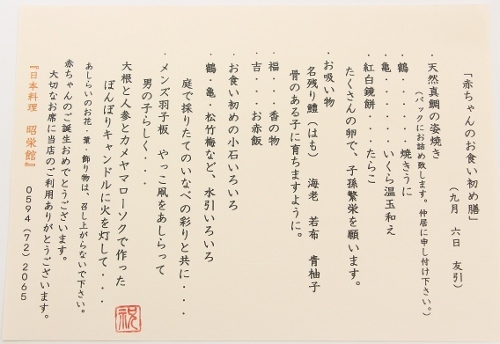 「赤ちゃんのお食い初め膳」
（九月　六日　友引）
・天然真鯛の姿焼き
（パックにお詰め致します。仲居に申し付け下さい。）
・鶴・・・・・焼きうに
・亀・・・・・いくら温玉和え
・紅白鏡餅・・・・たらこ
たくさんの卵で、子孫繁栄を願います。
・お吸い物
名残り鱧（はも）　海老　若布　青柚子
骨のある子に育ちますように。
・福・・・香の物
・吉・・・お赤飯
・お食い初めの小石いろいろ
・鶴・亀・松竹梅など、水引いろいろ
庭で採りたてのいなべの彩りと共に・・・
・メンズ羽子板　やっこ凧をあしらって
男の子らしく・・・
大根と人参とカメヤマローソクで作った
ぼんぼりキャンドルに火を灯して・・・
あしらいのお花・葉・飾り物は、召し上がらないで下さい。
赤ちゃんのご誕生おめでとうございます。
大切なお席に当店のご利用ありがとうございます。
『日本料理　昭栄館』　0594（72）2065
祝